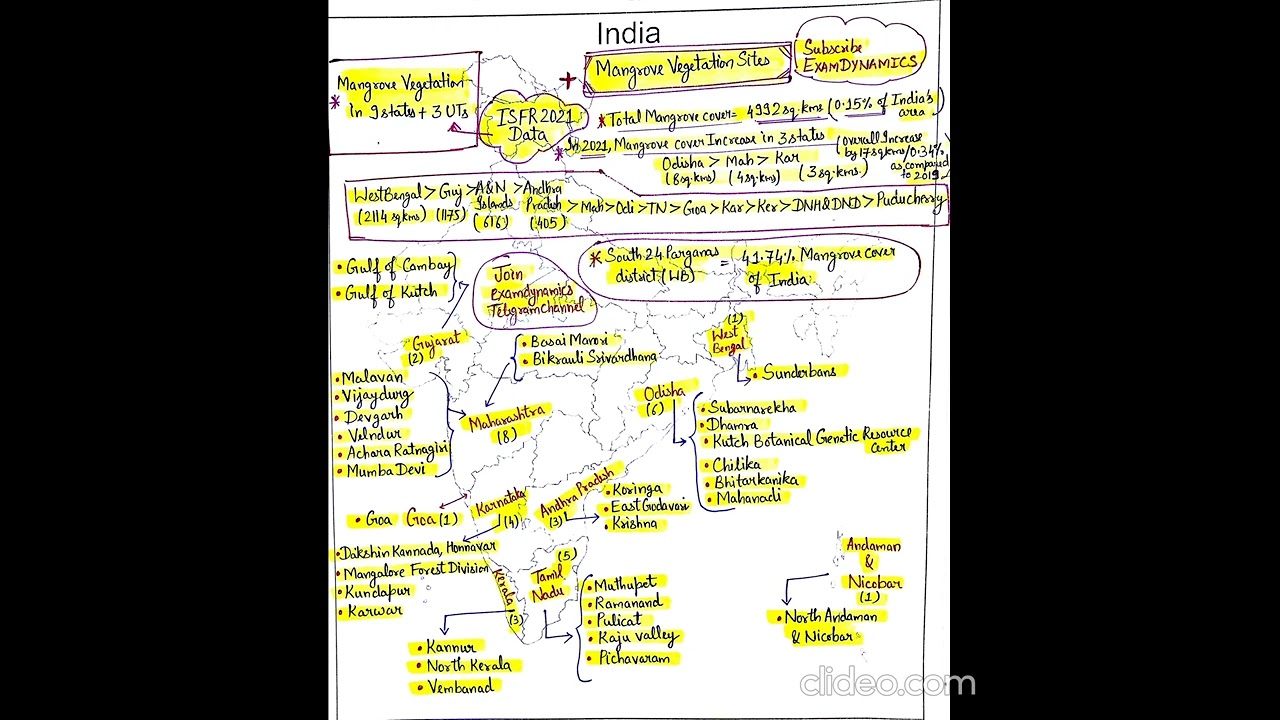 India
Mangrove Vegetation Sites
Subscribe
EXAMDYNAMICS
Mangrove Vegetation
* In 9 states + 3 UTs
ISFR 2021
Data
* Total Mangrove cover = 4992 sq.kms (0.15% of India's
area)
* In 2021, Mangrove cover Increase in 3 states
Odisha > Mah > Kar
(8 sq.kms) (4 sq.kms) (3 sq.kms.)
(overall Increase
by 17 sq.kms/0.34%
as compared
to 2019)
West Bengal > Guj > A&N Islands > Andhra Pradesh > Mah > Odi > TN > Goa > Kar > Ker > DNH & DND > Puducherry
(2114 sq.kms) (1175) (616) (405)
* South 24 Parganas
district (WB)
= 41.74% Mangrove cover
of India
• Gulf of Cambay
• Gulf of Kutch
Join
examdynamics
Telegram Channel
Gujarat
(2)
• Basai Manori
• Bikrauli Srivardhana
(1)
West
Bengal
• Sunderbans
• Malavan
• Vijaydurg
• Devgarh
• Velndur
• Achara Ratnagiri
• Mumba Devi
Maharashtra
(8)
Odisha
(6)
• Subarnarekha
• Dhamra
• Kutch Botanical Genetic Resource
Center
• Chilika
• Bhitarkanika
• Mahanadi
• Goa Goa (1)
Karnataka
(4)
Andhra Pradesh
(3)
• Koringa
• East Godavari
• Krishna
• Dakshin Kannada, Honnavar
• Mangalore Forest Division
• Kundapur
• Karwar
Kerala
(3)
(5)
Tamil
Nadu
• Muthupet
• Ramanand
• Pulicat
• Kaju valley
• Pichavaram
Andaman
&
Nicobar
(1)
• North Andaman
& Nicobar
• Kannur
• North Kerala
• Vembanad
clideo.com